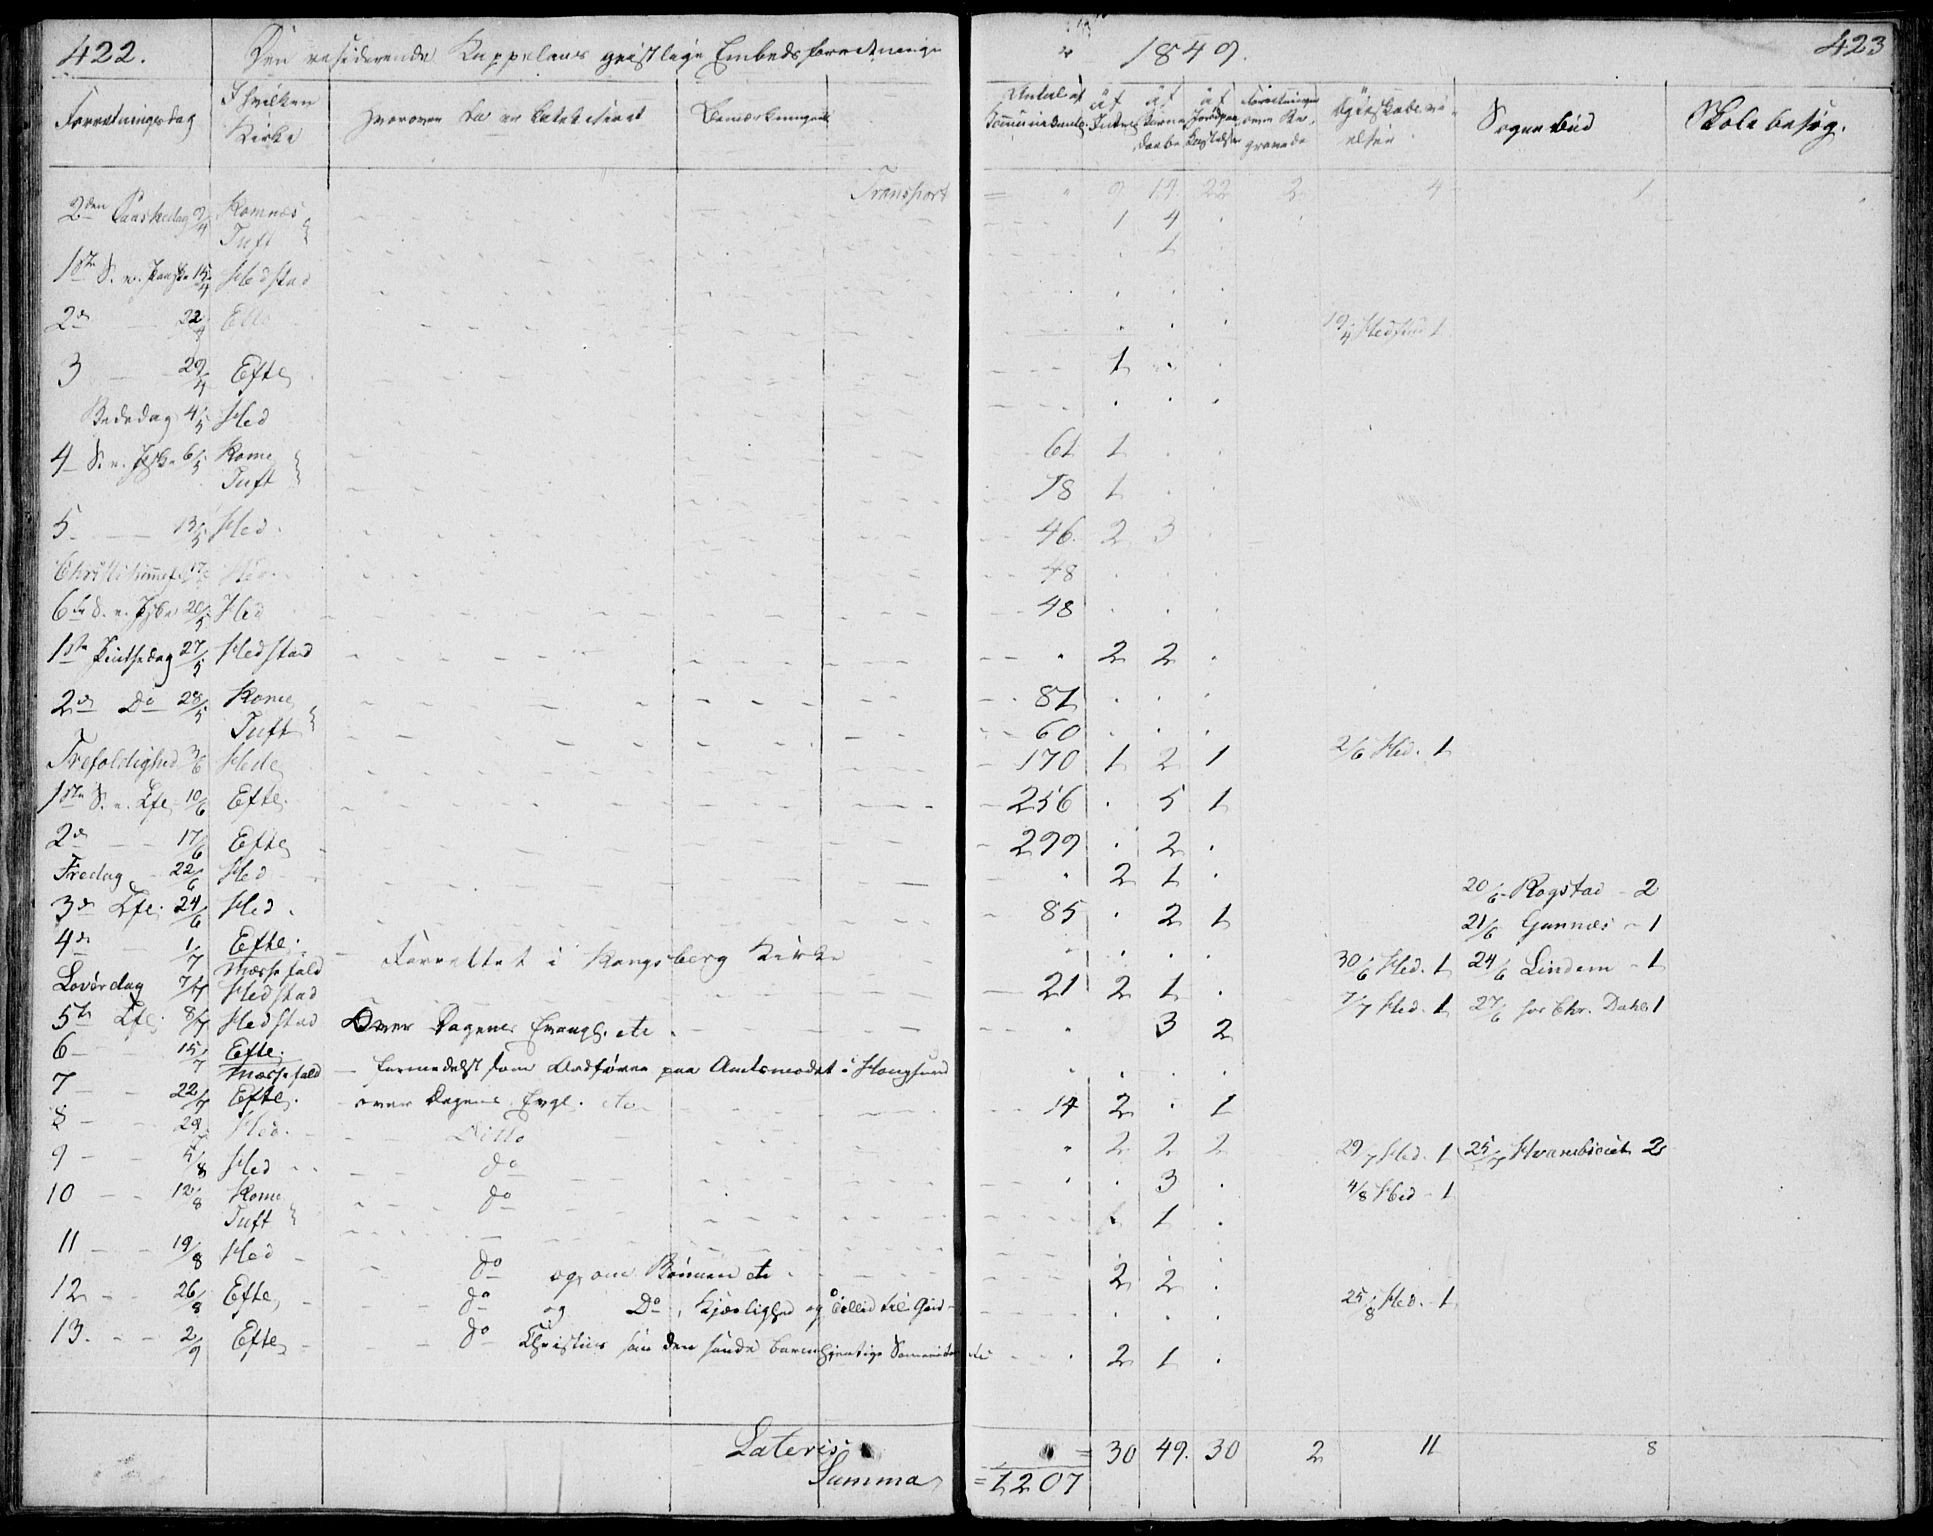 422. Den residerende Kappelans geistlige Embedsforretninger
1849. 423
Forretningsdag I hvilken Kirke Hvorover da er Catechiseret Bemærkninger
Antal af Communicanter af Introd af Børne Daabe af Forlovn over Be gravede Ægteskabs vi elser Sognebud Skolebesøg.
Transport = " 9 19 22 2 4 1
2den Paaskedag 2/4 Komnæs 1 4
Tuft 1
1ste S. e. Paaske 15/4 Hedstad
2d 22/4 Efte 19/4 Hedstad 1
3 29/4 Efte 1
Bededag 4/5 Hed
4 S. e. Paaske 6/5 Komn 61 1
Tuft 18 1
5 13/5 Hed. 46 2 3
Christi himmelf 17/5 Hed. 48
6te S. e. Paaske 20/5 Hed 48
1ste Pintsedag 27/5 Hedstad " 2 2
2d Do 28/5 Komn 87
Tuft 60
Trefoldighed 3/6 Hede 170 1 2 1 2/6 Hed. 1
1ste S. e. Tfe 10/6 Efte. 256 . 5 1
2d 17/6 Efte 299 . 2 .
Fredag 22/6 Hed " 2 1 . 20/6 Rogstad - 2
3d Tfe. 24/6 Hed. 85 . 2 1 21/6 Gunnæs - 1
4d 1/7 Efte. Messefald - Forrettet i Kongsberg Kirke 30/6 Hed. 1 24/6 Lindem - 1
Løverdag 7/7 Hedstad 21 2 1 . 7/7 Hed. 1 27/6 hos Chr. Dahls 1
5te Tfe. 8/7 Hedstad Over Dagens Evangl. etc. " 3 2
6 15/7 Efte. Messefald - formedelst som Ordfører paa Amtsmødet i Hougsund
7 22/7 Efte. - over Dagens Evgl. etc 14 2 . 1
8 29/7 Hed. Ditto " 2 2 2 29/7 Hed. 1 25/7 2
9 5/8 Hed do . . 3 . 4/8 Hed - 1
10 12/8 Komn do
Tuft 1 1 .
11 19/8 Hed do og om Bønnen etc 2 2 .
12 26/8 Efte do og Do, Kjærlighed og Tillid til Gud 25/8 Hed. 1
13. 2/9 Efte do Christus som den sande barmhjertige Samaritan etc . 2 1 .
Lateris = 30 49. 30 2 11 8
Summa = 1207